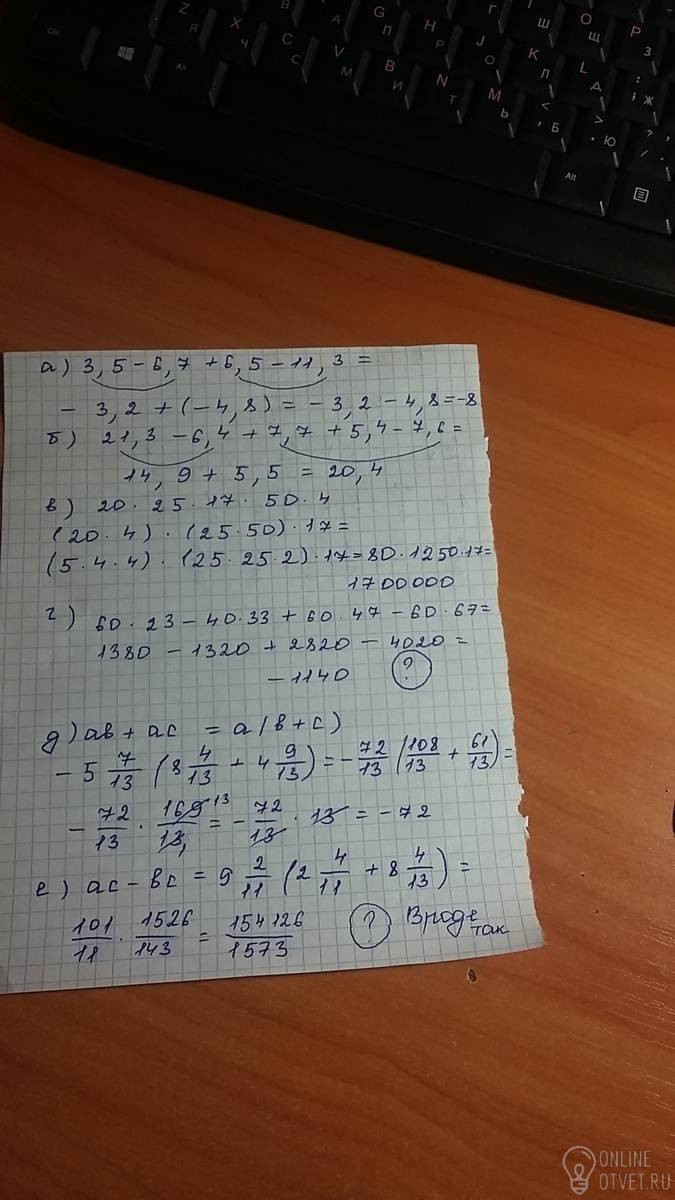 Ctrl
Alt
Z Я
X Ч
C С
V М
B И
N Т
M Ь
< , Б
> . Ю
? , / .
G П
H Р
J О
K Л
L Д
: ; Ж
Г
I Ш
O Щ
P З
А
В
Alt
а) 3,5 - 6,7 + 6,5 - 11,3 =
- 3,2 + (-4,8) = - 3,2 - 4,8 = -8
б) 21,3 - 6,4 + 7,7 + 5,4 - 7,6 =
14,9 + 5,5 = 20,4
в) 20 · 25 · 17 · 50 · 4
(20 · 4) · (25 · 50) · 17 =
(5 · 4 · 4) · (25 · 25 · 2) · 17 = 80 · 1250 · 17 =
1700000
г) 60 · 23 - 40 · 33 + 60 · 47 - 60 · 67 =
1380 - 1320 + 2820 - 4020 =
- 1140 ?
д) ав + ас = а(в + с)
- 5 7/13 (8 4/13 + 4 9/13) = - 72/13 (108/13 + 61/13) =
- 72/13 · 169 13/13 1 = - 72/13 · 13 = - 72
е) ас - вс = 9 2/11 (2 4/11 + 8 4/13) =
101/11 · 1526/143 = 154126/1573 ? Вроде так
ONLINE
OTVET.RU